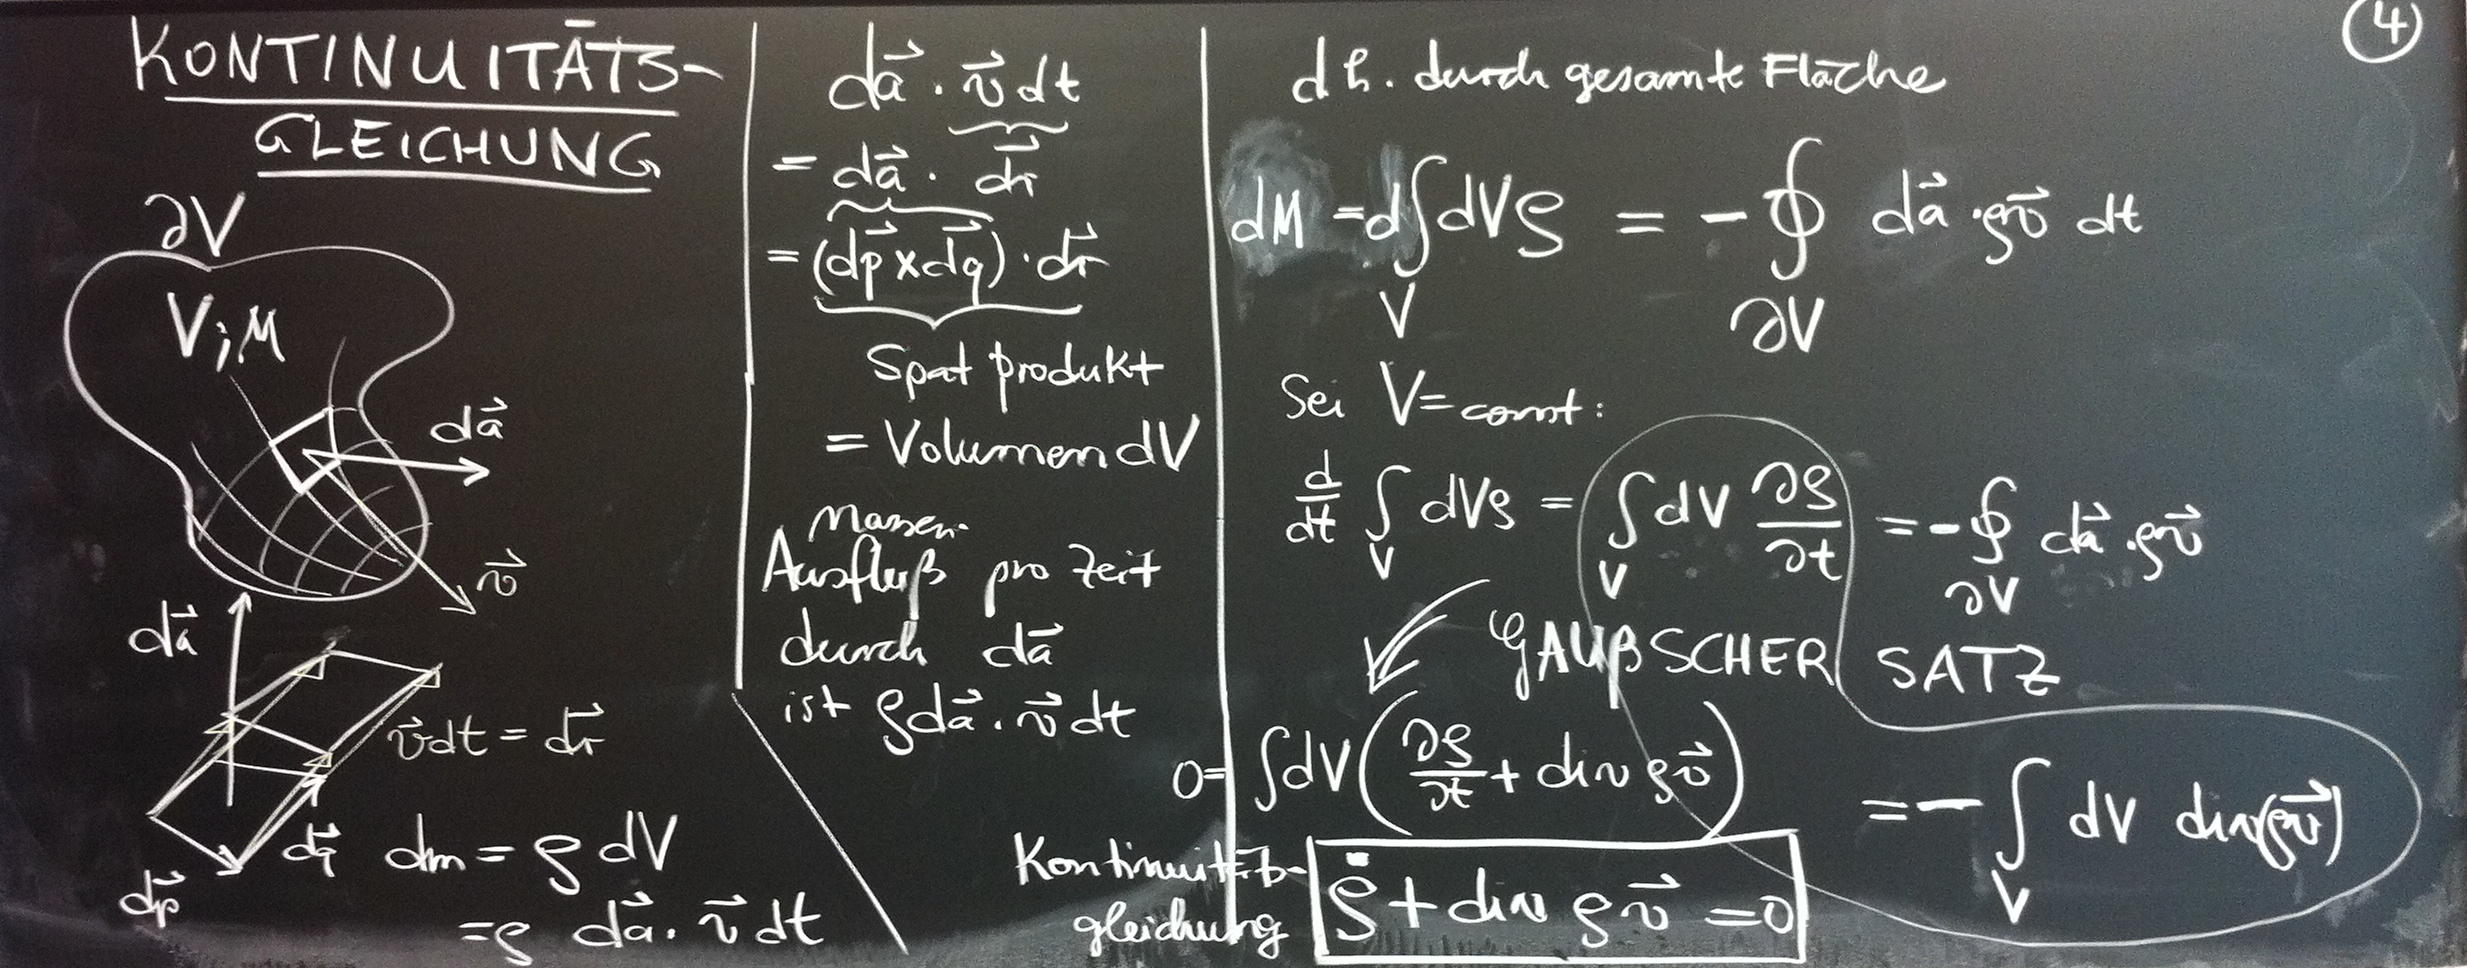 KONTINUITÄTS-
GLEICHUNG
∂V
V; M
da⃗
v⃗
da⃗
v⃗dt = dr⃗
dq⃗
dp⃗
dm = ρ dV
= ρ da⃗ · v⃗ dt
da⃗ · v⃗ dt
= da⃗ · dr⃗
= (dp⃗ × dq⃗) · dr⃗
Spatprodukt
= Volumen dV
Massen-
Ausfluß pro Zeit
durch da⃗
ist ρ da⃗ · v⃗ dt
④
d h. durch gesamte Fläche
dM = d∫dVρ = - ∮ da⃗ · ρv⃗ dt
V ∂V
Sei V = const:
d/dt ∫ dVρ = ∫ dV ∂ρ/∂t = - ∮ da⃗ · ρv⃗
V V ∂V
GAUßSCHER SATZ
0 = ∫dV (∂ρ/∂t + div ρv⃗)
= - ∫ dV div(ρv⃗)
V
Kontinuitäts-
gleichung
ρ̇ + div ρv⃗ = 0